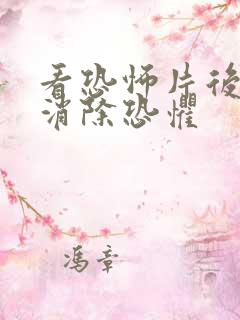 看恐怖片後
消除恐懼
馮章